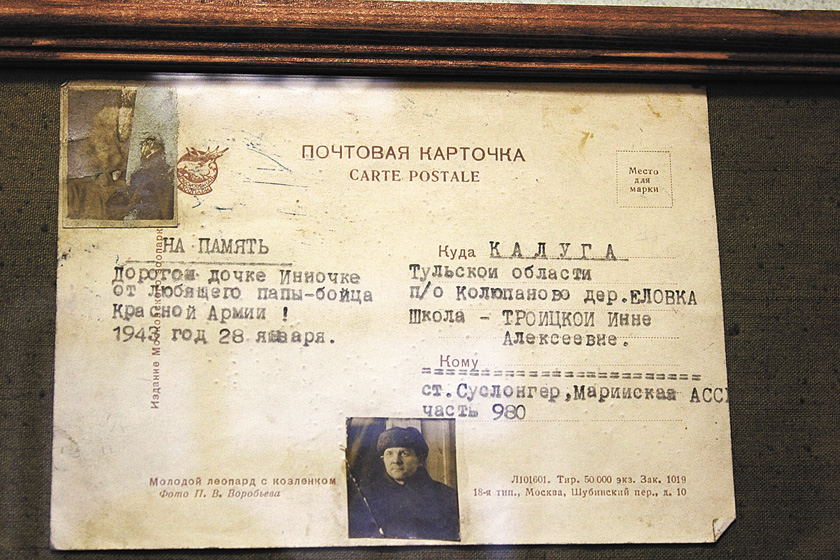 ПОЧТОВАЯ КАРТОЧКА
CARTE POSTALE
Место
для
марки
НА ПАМЯТЬ
Дорогой дочке Инночке
от любящего папы-бойца
Красной Армии !
1943 год 28 января.
Издание Московского зоопарка
Куда КАЛУГА
Тульской области
п/о Колюпаново дер.ЕЛОВКА
Школа - ТРОИЦКОЙ Инне
Алексеевне.
Кому
ст.Суслонгер,Марийская АСС
часть 980
Молодой леопард с козленком
Фото П. В. Воробьева
Л101601. Тир. 50 000 экз. Зак. 1019
18-я тип., Москва, Шубинский пер., д. 10